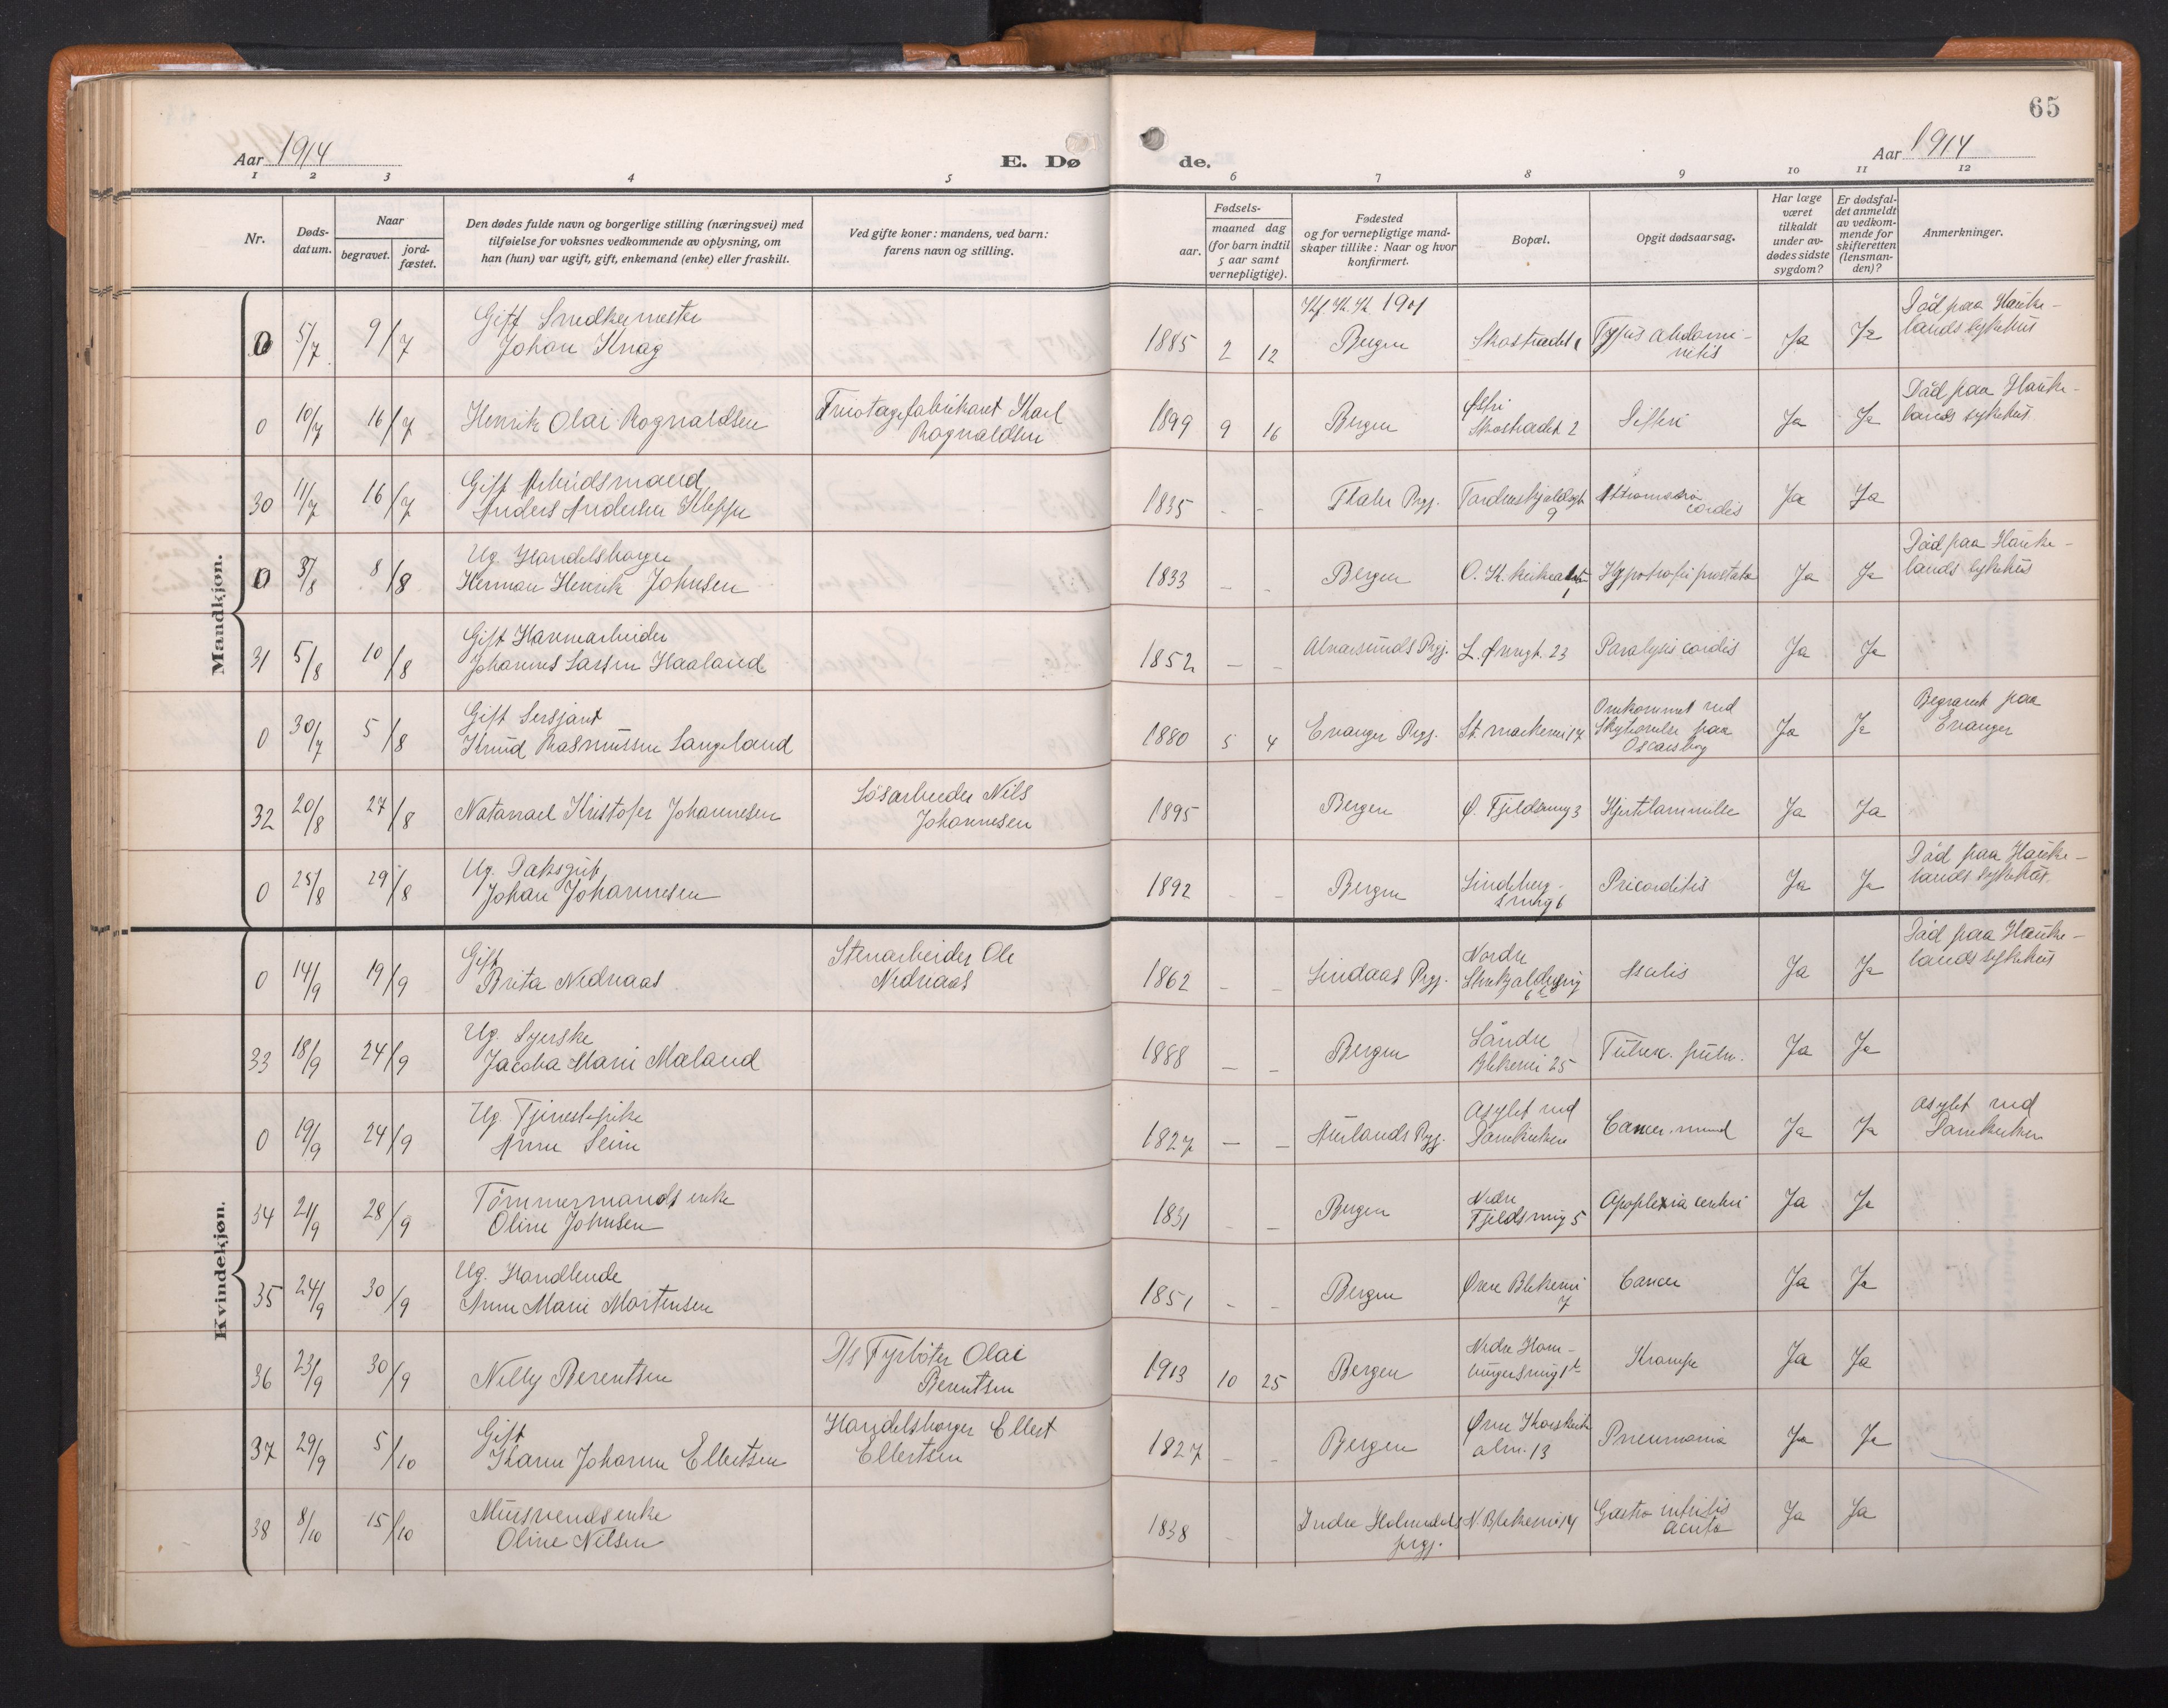 65
Aar 1914
E. Dø
de.
Aar 1914
1 2 3 4 5 6 7 8 9 10 11 12
Nr.
Døds-
datum.
Naar
begravet.
jord-
fæstet.
Den dødes fulde navn og borgerlige stilling (næringsvei) med
tilføielse for voksnes vedkommende av oplysning, om
han (hun) var ugift, gift, enkemand (enke) eller fraskilt.
Ved gifte koner: mandens, ved barn:
farens navn og stilling.
Fødsels-
aar.
maaned dag
(for barn indtil
5 aar samt
vernepligtige).
Fødested
og for vernepligtige mand-
skaper tillike: Naar og hvor
konfirmert.
Bopæl.
Opgit dødsaarsag.
Har læge
været
tilkaldt
under av-
dødes sidste
sygdom?
Er dødsfal-
det anmeldt
av vedkom-
mende for
skifteretten
(lensman-
den)?
Anmerkninger.
Mandkjøn.
0 5/7 9/7
Gift Snedkermester
Johan Knag
1885 2 12
1901
Bergen
Ja Ja
Død paa Hauke-
lands sykehus
0 10/7 16/7
Henrik Olai Rognaldsen
Tricotagefabrikant Karl
Rognaldsen
1899 9 16
Bergen
Østre
Skostrædet 2
Difteri
Ja Ja
Død paa Hauke-
lands sykehus
30 11/7 16/7
Gift Arbeidsmand
Anders Andersen Kleppe
1835 - -
Prgj.
Tordenskjoldsgt
9
cordis
Ja Ja
0 3/8 8/8
Ug. Handelsborger
Herman Henrik Johnsen
1833 - -
Bergen
1
Hypotrofi prostata
Ja Ja
Død paa Hauke-
lands sykehus
31 5/8 10/8
Gift Havnearbeider
Johannes Larsen Haaland
1852 - -
Alversunds Prgj.
L. Øvregt. 23
Paralysis cordis
Ja Ja
0 30/7 5/8
Gift Sersjant
Knud Rasmussen Langeland
1880 5 4
Evanger Prgj.
St. Markevei 17
Omkommet ved
Skytøvelse paa
Oscarsborg
Ja Ja
Begravet paa
Evanger
32 20/8 27/8
Natanael Kristofer Johannesen
Løsarbeider Nils
Johannesen
1895
Bergen
Ø. Fjeldsmug 3
Hjertelammelse
Ja Ja
0 25/8 29/8
Ug. Daksgut
Johan Johannesen
1892 - -
Bergen
Lindeberg-
smug 6
Pricorditis
Ja Ja
Død paa Hauke-
lands sykehus.
Kvindekjøn.
0 14/9 19/9
Gift
Brita Nedreaas
Stenarbeider Ole
Nedreaas
1862 - -
Lindaas Prgj.
Nordre
Ja Ja
Død paa Hauke-
lands sykehus
33 18/9 24/9
Ug. Syerske
Jacoba Marie Mæland
1888 - -
Bergen
Søndre
Blekevei 25
Tuberc. pulm.
Ja Ja
0 19/9 24/9
Ug. Tjenestepike
Anne Seim
1827 - -
Aurlands Prgj.
Asylet ved
Domkirken
Ja Ja
Asylet ved
Domkirken
34 21/9 28/9
Tømmermands enke
Oline Johnsen
1831 - -
Bergen
Nedre
Fjeldsmug 5
Apoplexia cerebri
Ja Ja
35 24/9 30/9
Ug. Handlende
Anne Marie Mortensen
1851 - -
Bergen
Øvre Blekevei
7
Cancer
Ja Ja
36 23/9 30/9
Nelly Berentsen
D/s Fyrbøter Olai
Berentsen
1913 10 25
Bergen
Krampe
Ja Ja
37 29/9 5/10
Gift
Karen Johanne Ellertsen
Handelsborger Ellert
Ellertsen
1827 - -
Bergen
Øvre Korskirke
alm. 13
Pneumonia
Ja Ja
38 8/10 15/10
Mursvends enke
Oline Nilsen
1838 -
Indre Holmedals
prgj.
N. Blekevei 14
Gastro intritis
acuta
Ja Ja